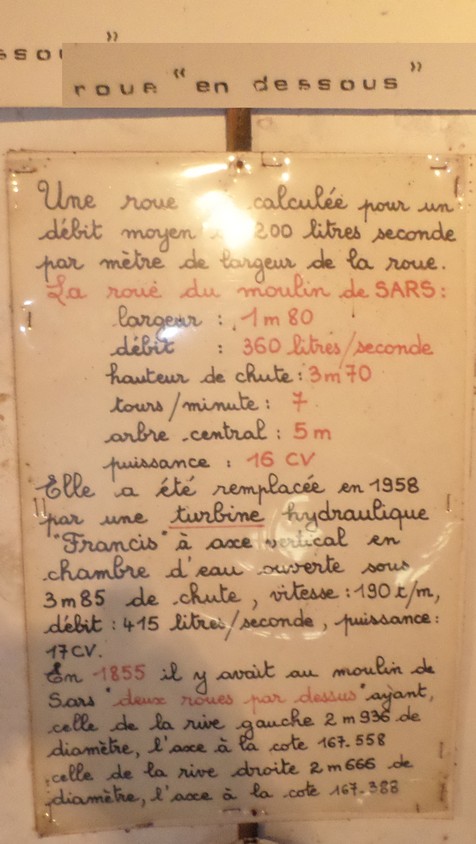 "
roue "en dessous"
Une roue calculée pour un
débit moyen 200 litres seconde
par mètre de largeur de la roue.
La roue du moulin de SARS:
largeur : 1m80
débit : 360 litres/seconde
hauteur de chute: 3m70
tours/minute: 7
arbre central: 5m
puissance : 16 CV
Elle a été remplacée en 1958
par une turbine hydraulique
"Francis" à axe vertical en
chambre d'eau ouverte sous
3m85 de chute, vitesse: 190 t/m,
débit: 415 litres/seconde, puissance:
17CV.
En 1855 il y avait au moulin de
Sars "deux roues par dessus" ayant,
celle de la rive gauche 2m936 de
diamètre, l'axe à la cote 167.558
celle de la rive droite 2m666 de
diamètre, l'axe à la cote 167.388